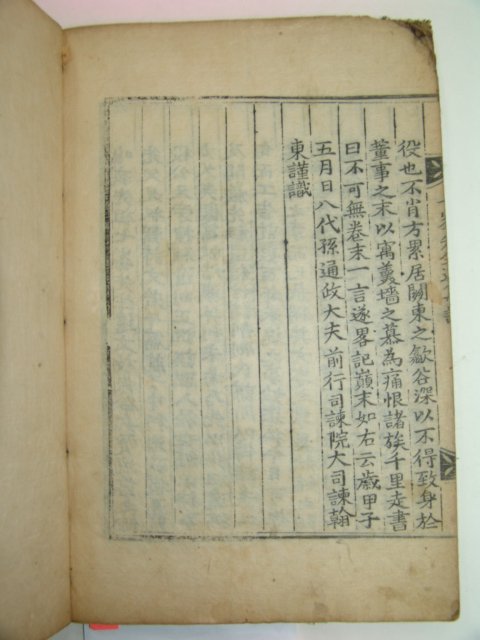 役也不肖方累居關東之歙谷深以不得致身於
董事之末以寓羹墻之慕為痛恨諸族千里走書
曰不可無卷末一言遂畧記巔末如右云歲甲子
五月日八代孫通政大夫前行司諫院大司諫翰
東謹識